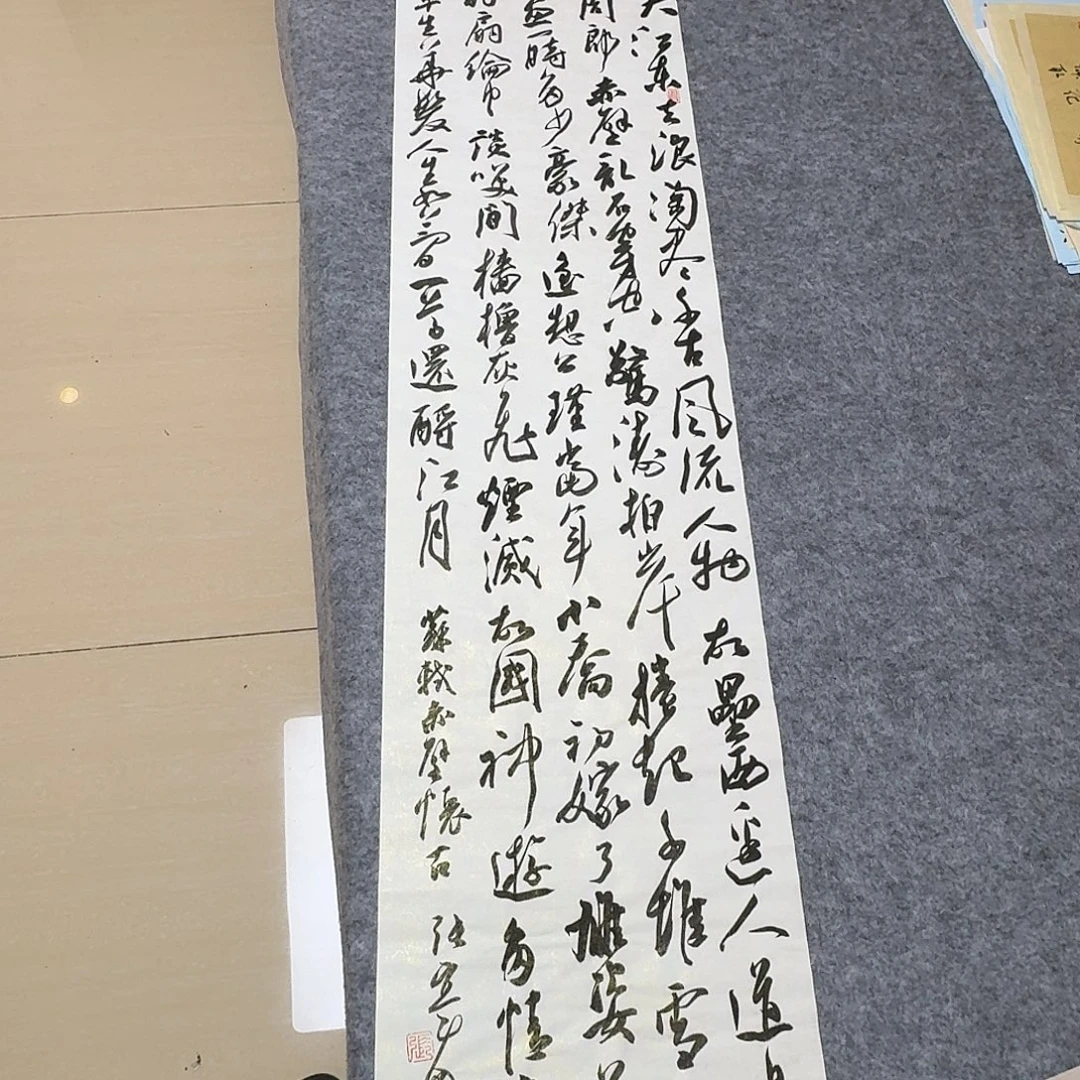 大江東去浪淘尽千古風流人物故壘西邊人道是
周郎赤壁乱石穿空驚濤拍岸捲起千堆雪
畫一時多少豪傑遙想公瑾當年小喬初嫁了雄姿
扇綸巾談笑間檣櫓灰飛煙滅故國神遊多情
早生華髮人生如夢一尊還酹江月
蘇軾赤壁懷古
張
張